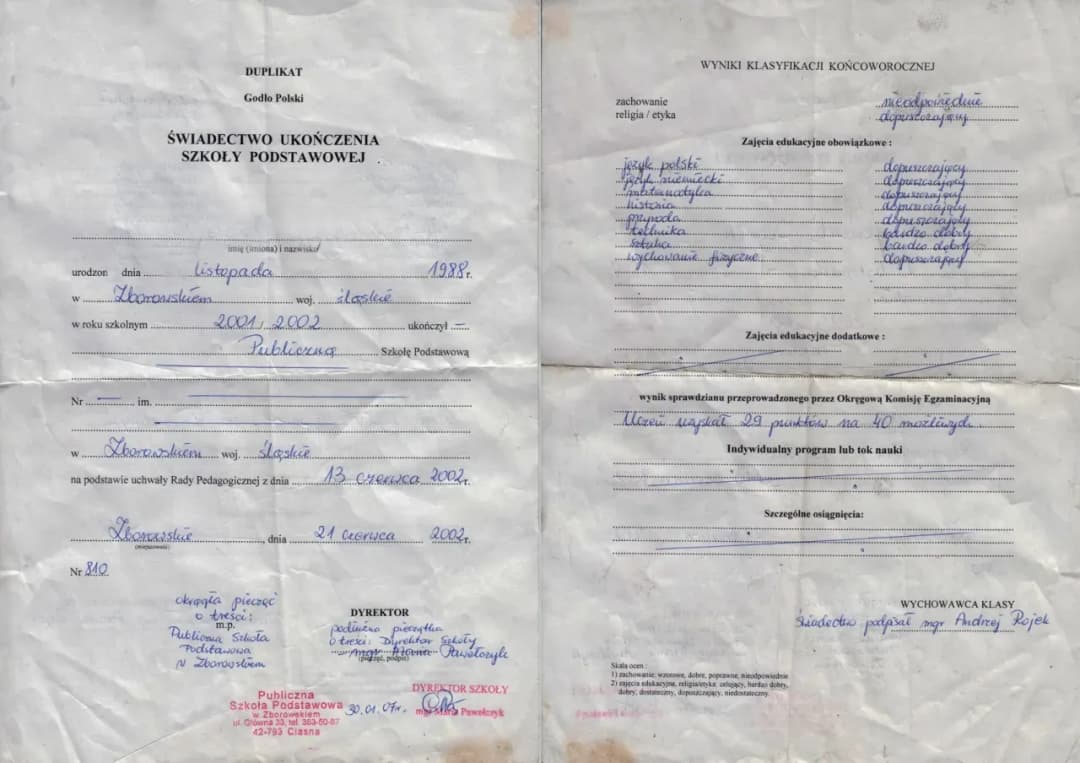 DUPLIKAT
Godło Polski
ŚWIADECTWO UKOŃCZENIA
SZKOŁY PODSTAWOWEJ
imię (imiona) i nazwisko
urodzon dnia listopada 1988r.
w Zborowskiem woj. śląskie
w roku szkolnym 2001/2002 ukończył –
Publiczną Szkołę Podstawową
Nr — im.
w Zborowskiem woj. śląskie
na podstawie uchwały Rady Pedagogicznej z dnia 13 czerwca 2002r.
Zborowskie, dnia 21 czerwca 2002r.
(miejscowość)
Nr 810
okrągła pieczęć
o treści:
m.p.
Publiczna Szkoła
Podstawowa
w Zborowskiem
DYREKTOR
podłużna pieczątka
o treści: Dyrektor Szkoły
mgr Maria Pawełczyk
(pieczęć, podpis)
Publiczna
Szkoła Podstawowa
w Zborowskiem
ul. Główna 33, tel. 353-50-87
42-793 Ciasna
30.01.07r.
DYREKTOR SZKOŁY
mgr Maria Pawełczyk
WYNIKI KLASYFIKACJI KOŃCOWOROCZNEJ
zachowanie nieodpowiednie
religia / etyka dopuszczający
Zajęcia edukacyjne obowiązkowe :
język polski dopuszczający
język niemiecki dopuszczający
matematyka dopuszczający
historia dopuszczający
przyroda dopuszczający
technika bardzo dobry
sztuka bardzo dobry
wychowanie fizyczne dopuszczający
Zajęcia edukacyjne dodatkowe :
wynik sprawdzianu przeprowadzonego przez Okręgową Komisję Egzaminacyjną
Uczeń uzyskał 29 punktów na 40 możliwych.
Indywidualny program lub tok nauki
Szczególne osiągnięcia:
WYCHOWAWCA KLASY
Świadectwo podpisał mgr Andrzej Rojek
Skala ocen :
1) zachowanie: wzorowe, dobre, poprawne, nieodpowiednie
2) zajęcia edukacyjne, religia/etyka: celujący, bardzo dobry,
dobry, dostateczny, dopuszczający, niedostateczny.